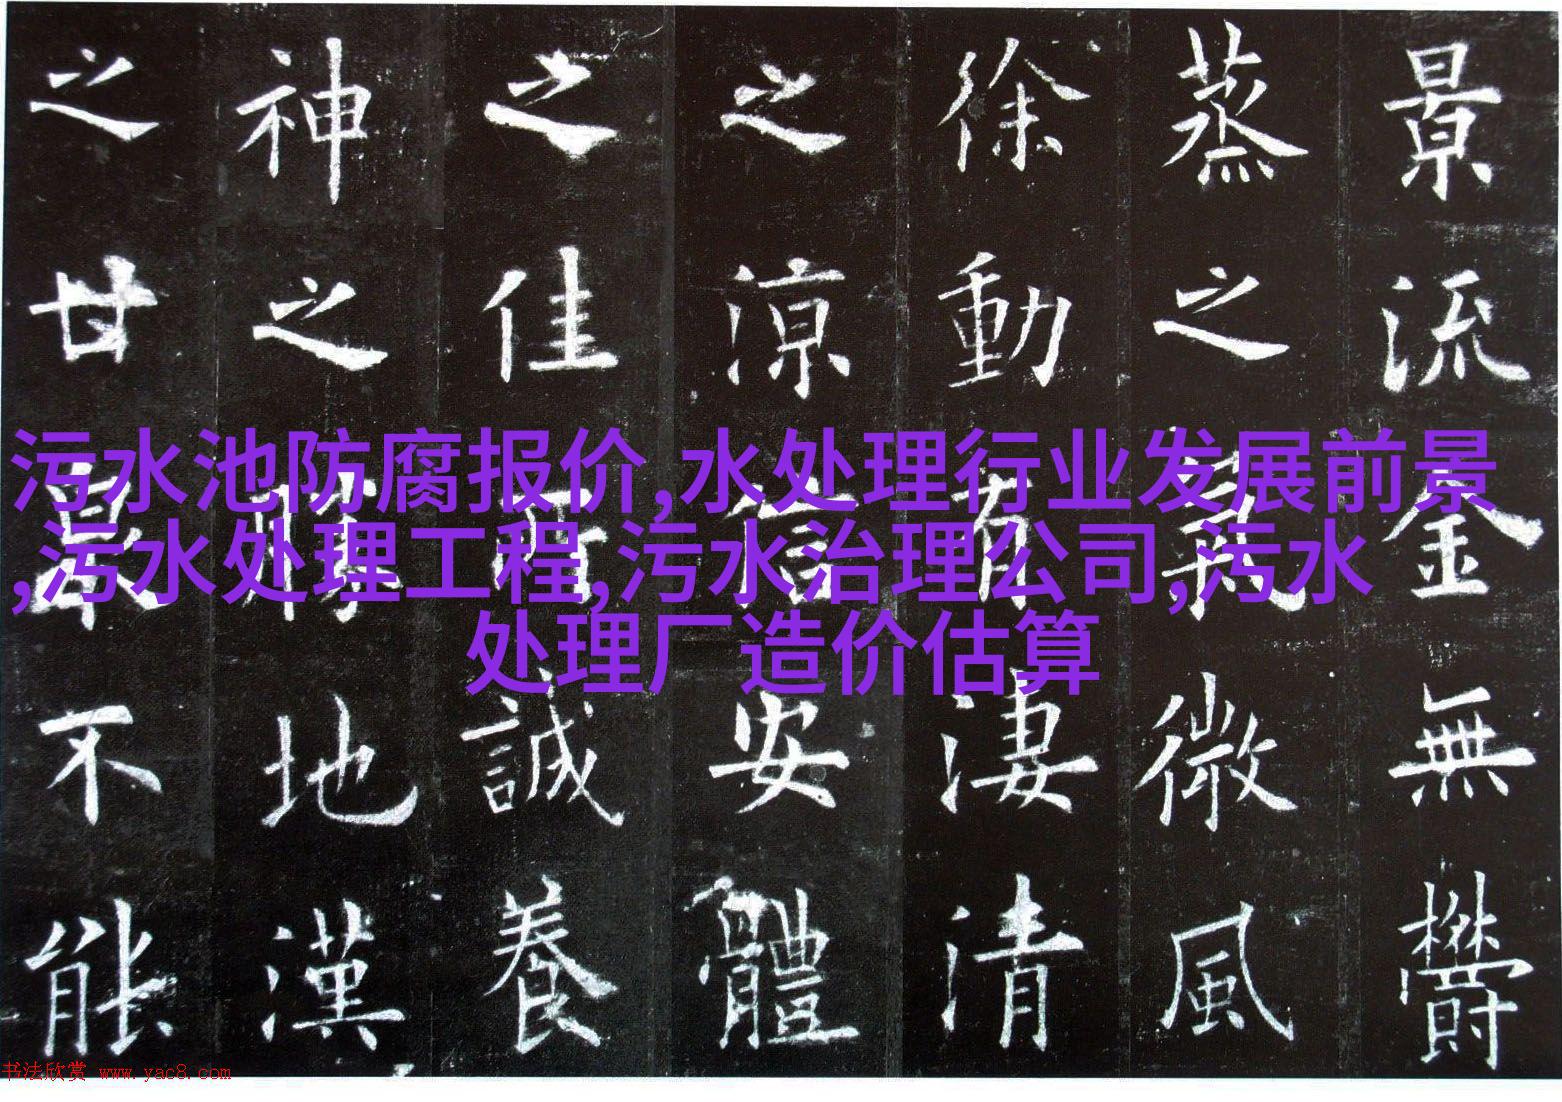 景流金無鬱
蒸之氣微風
徐動有淒清
之涼信安體
之佳所誠養
神之勝地漢
之甘泉不能
污水池防腐报价,水处理行业发展前景
,污水处理工程,污水治理公司,污水
处理厂造价估算
书法欣赏 www.yac8.com